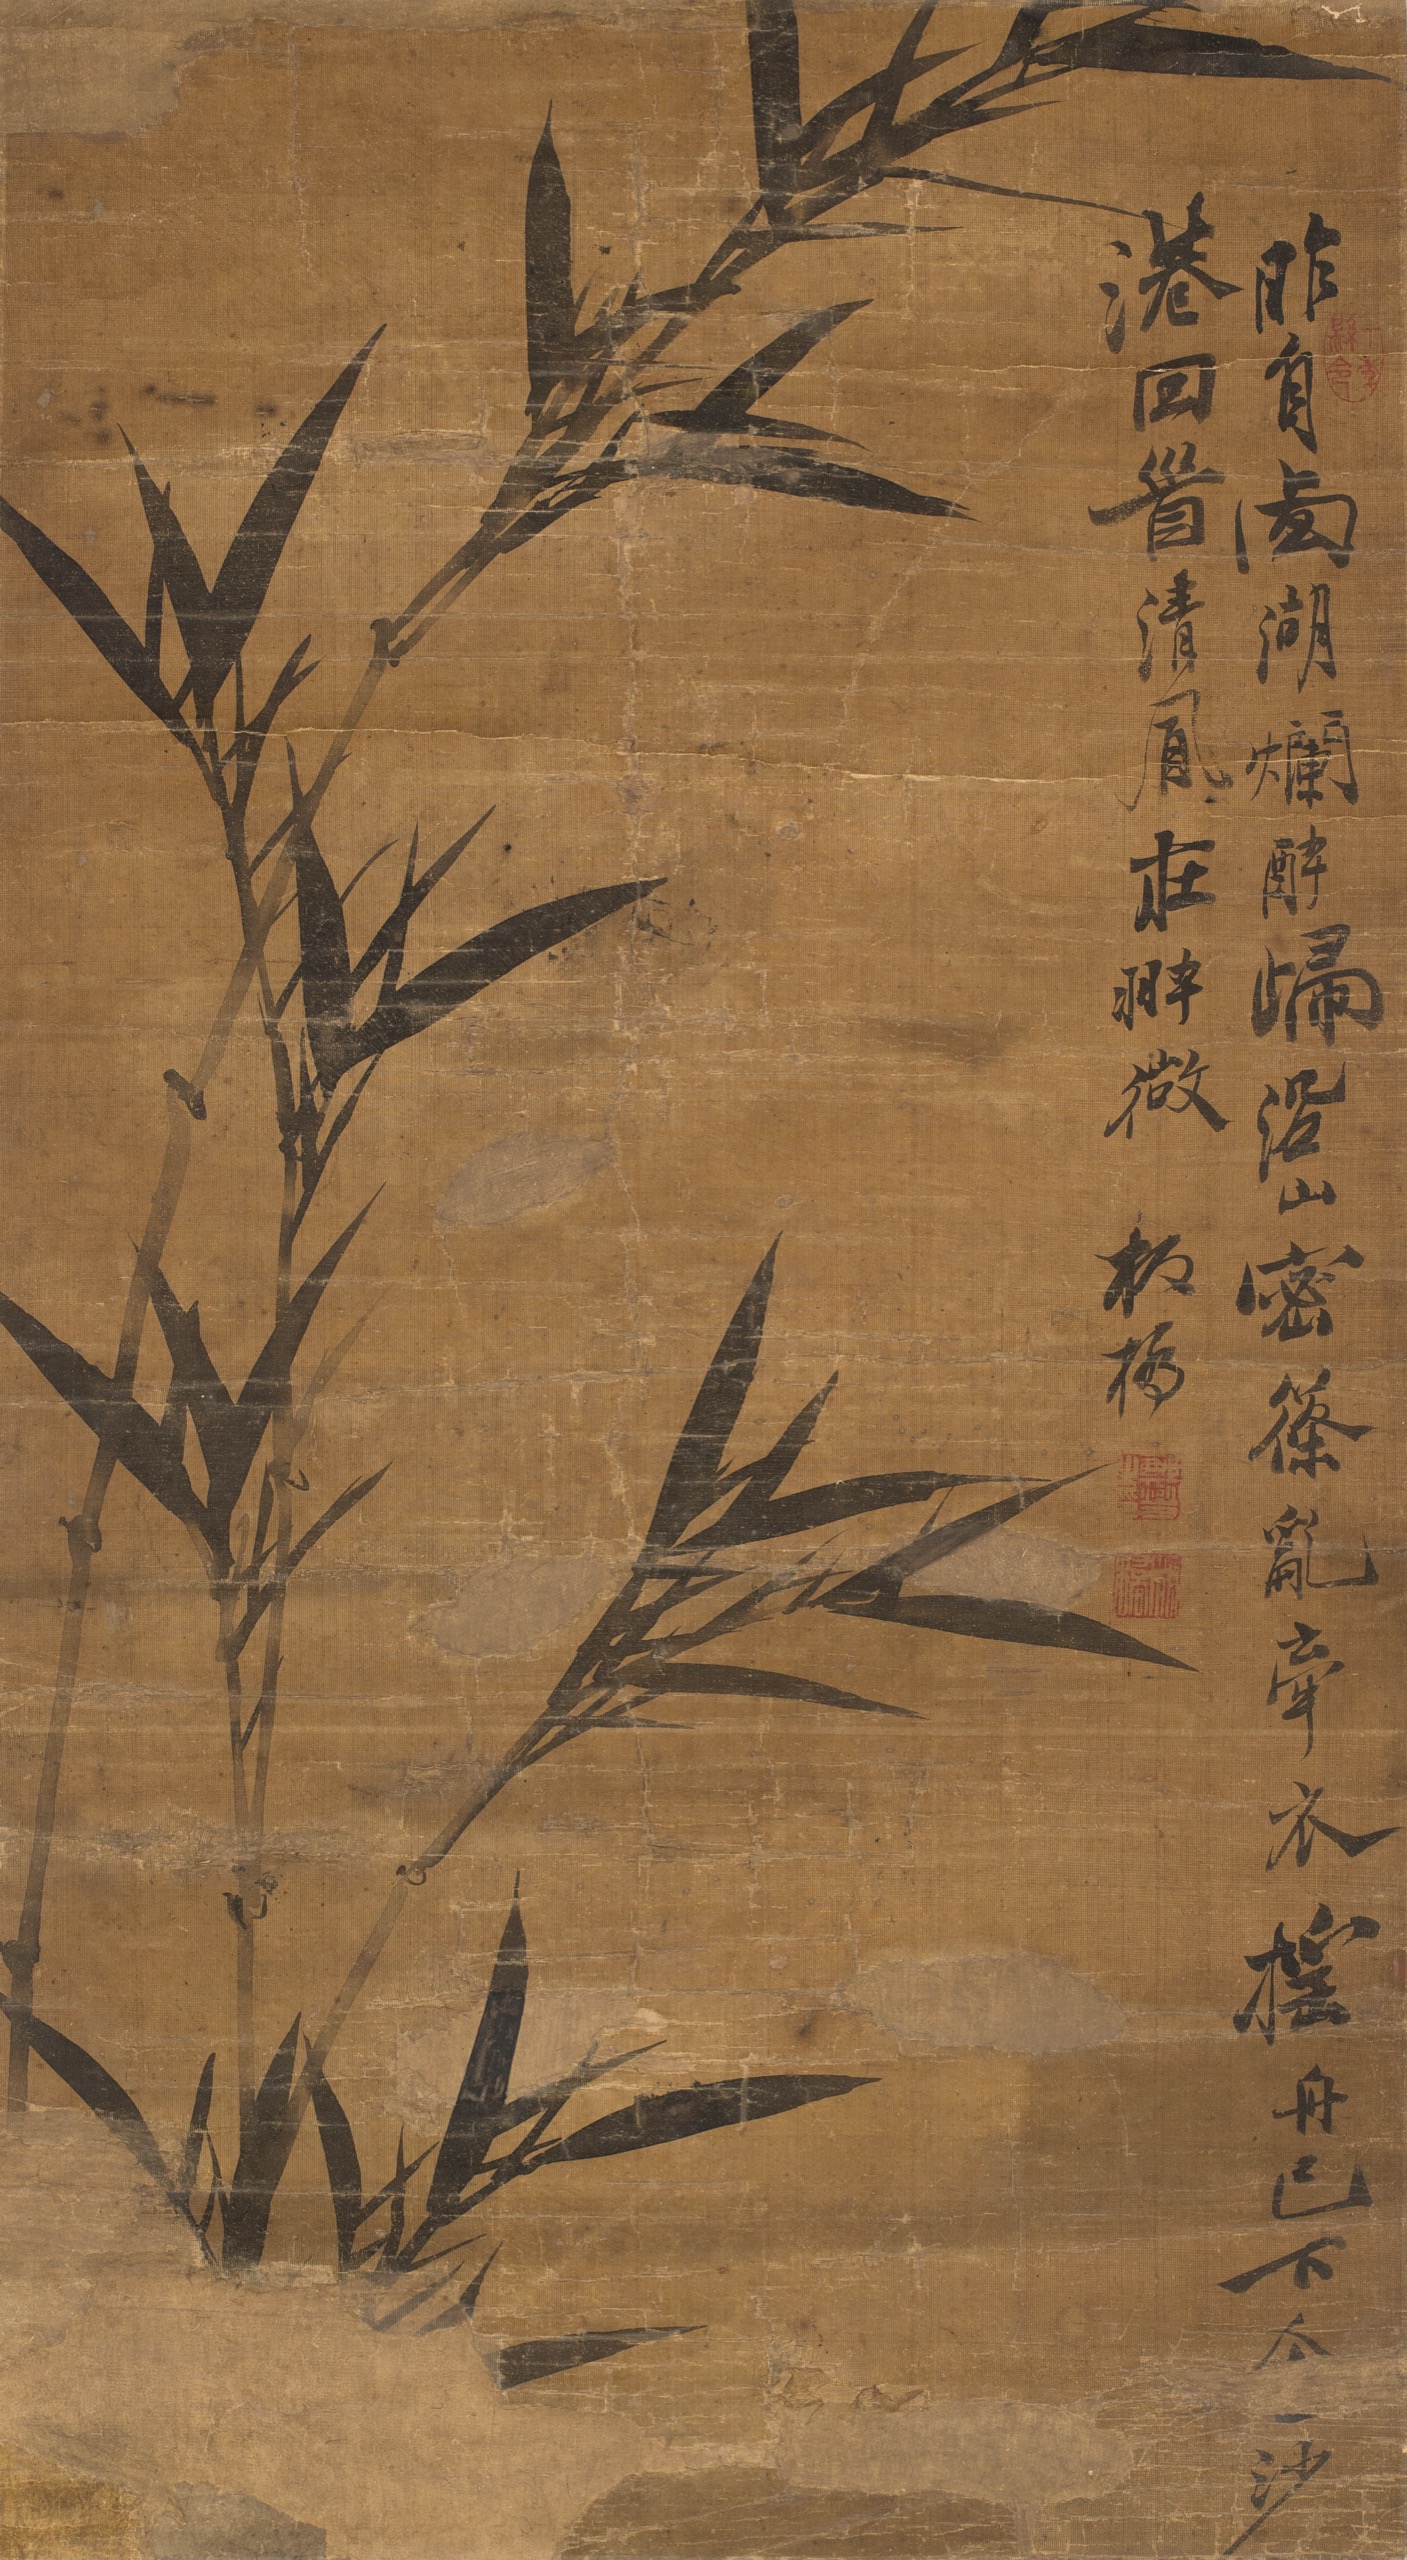 昨自西湖爛醉歸沿山密篠亂牽衣搖舟已下金沙
港回首清風在翠微
板橋